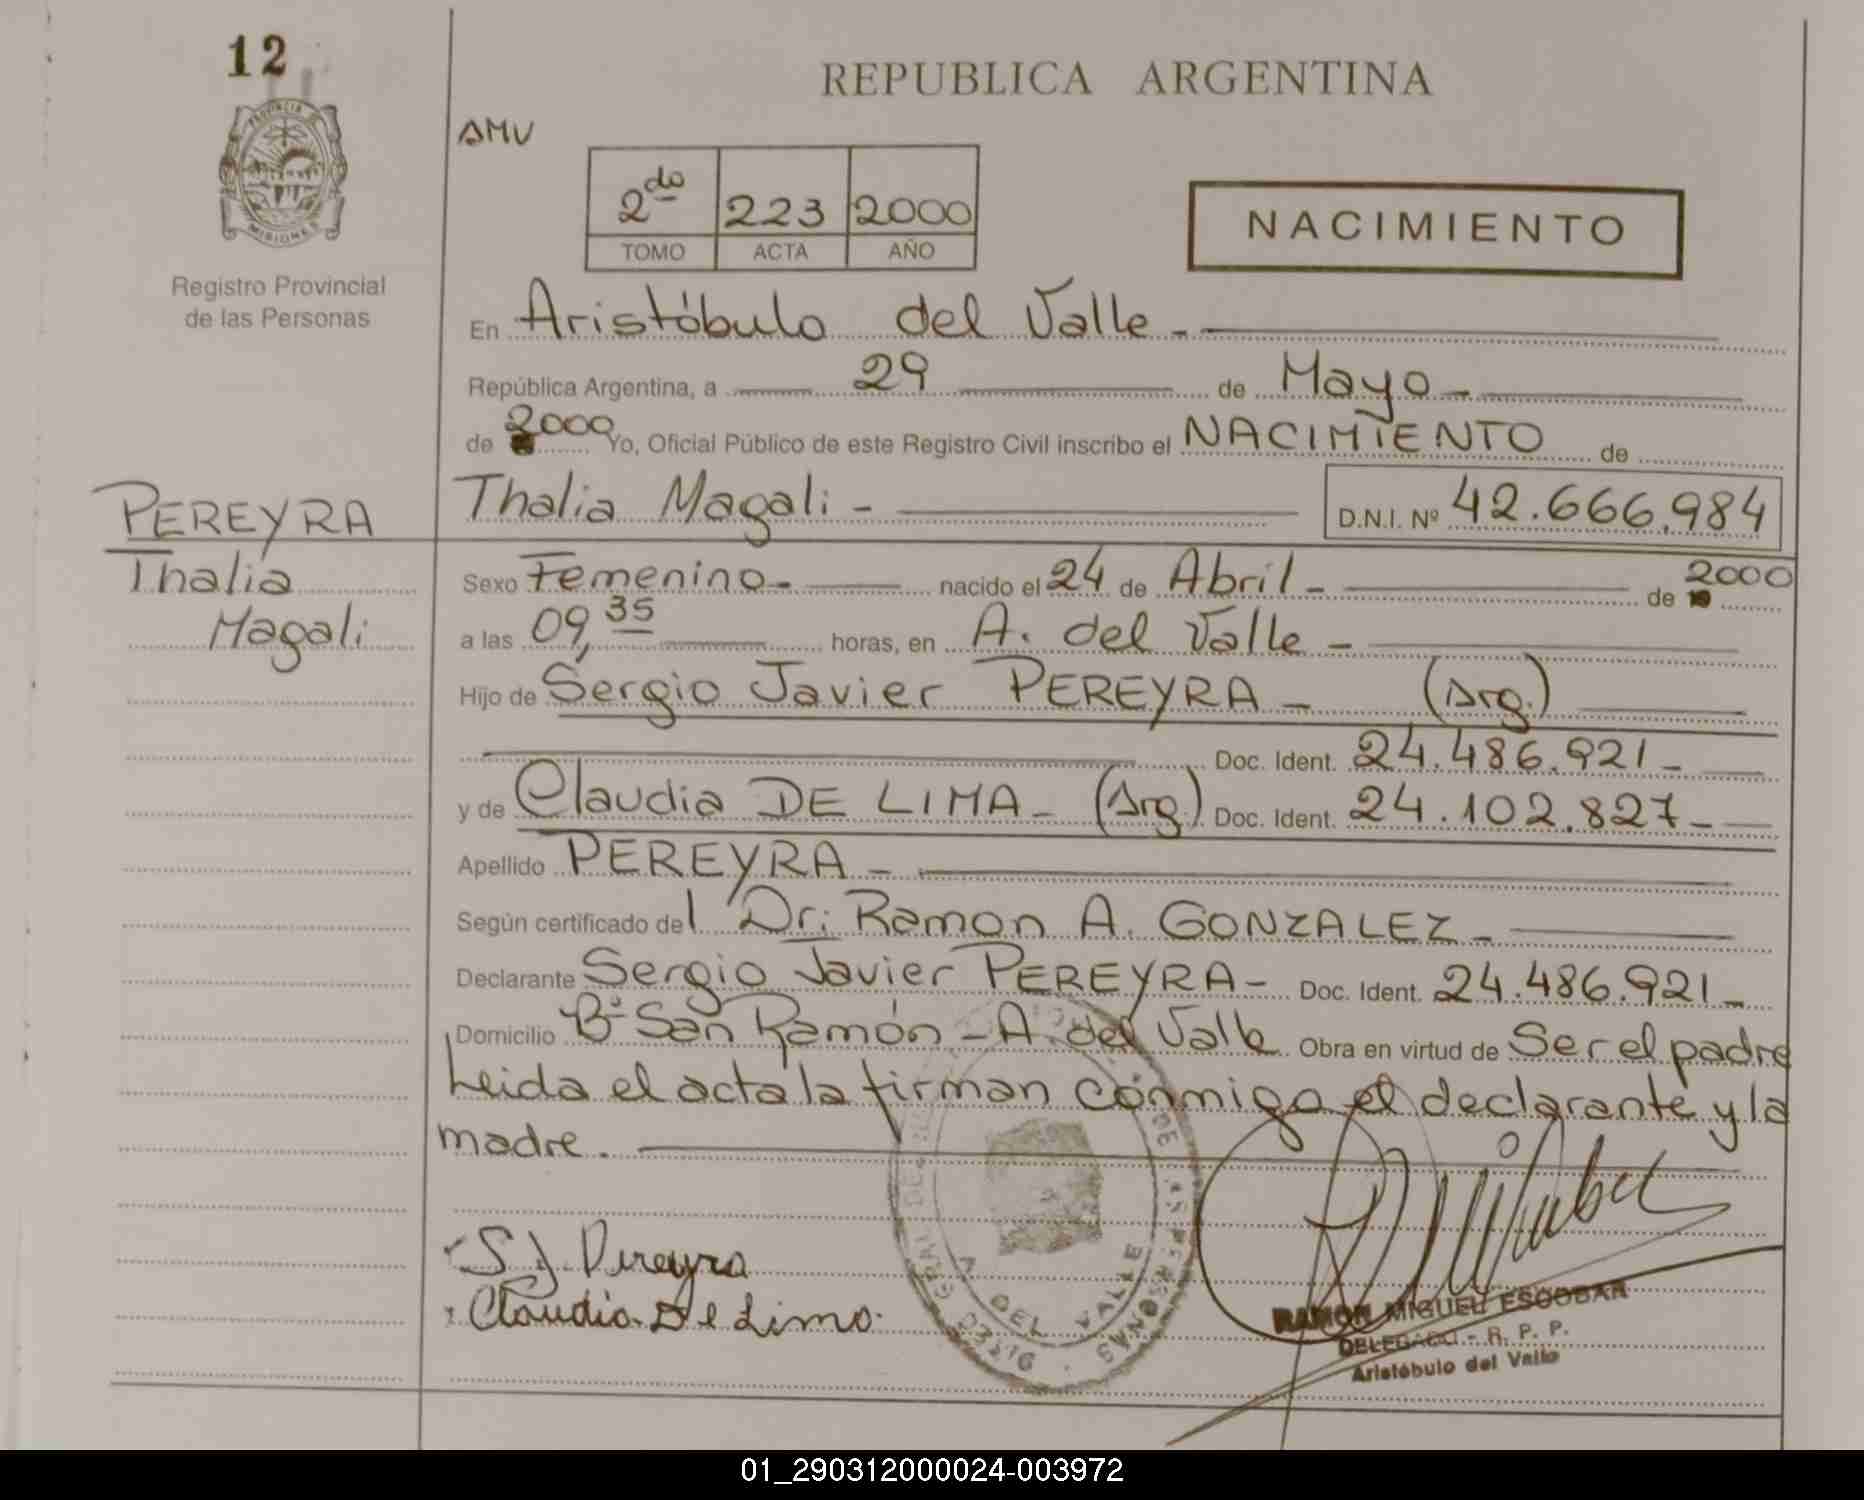 12
REPUBLICA ARGENTINA
PROVINCIA DE
MISIONES
Registro Provincial
de las Personas
AMV
2do 223 2000
TOMO ACTA AÑO
NACIMIENTO
En Aristóbulo del Valle -
República Argentina, a 29 de Mayo -
de 2000 Yo, Oficial Público de este Registro Civil inscribo el NACIMIENTO de
Thalia Magali - D.N.I. Nº 42.666.984
PEREYRA
Thalia
Magali
Sexo Femenino - nacido el 24 de Abril - de 2000
a las 09,35 horas, en A. del Valle -
Hijo de Sergio Javier PEREYRA - (Arg.)
Doc. Ident. 24.486.921 -
y de Claudia DE LIMA - (Arg.) Doc. Ident. 24.102.827 -
Apellido PEREYRA -
Según certificado del Dr: Ramon A. GONZALEZ -
Declarante Sergio Javier PEREYRA - Doc. Ident. 24.486.921 -
Domicilio Bº San Ramón - A. del Valle Obra en virtud de Ser el padre
Leida el acta la firman conmigo el declarante y la
madre.
S J. Pereyra
Claudia De Lima.
A. DEL VALLE
MISIONES
RAMON MIGUEL ESCOBAR
DELEGADO - R. P. P.
Aristóbulo del Valle
01_290312000024-003972